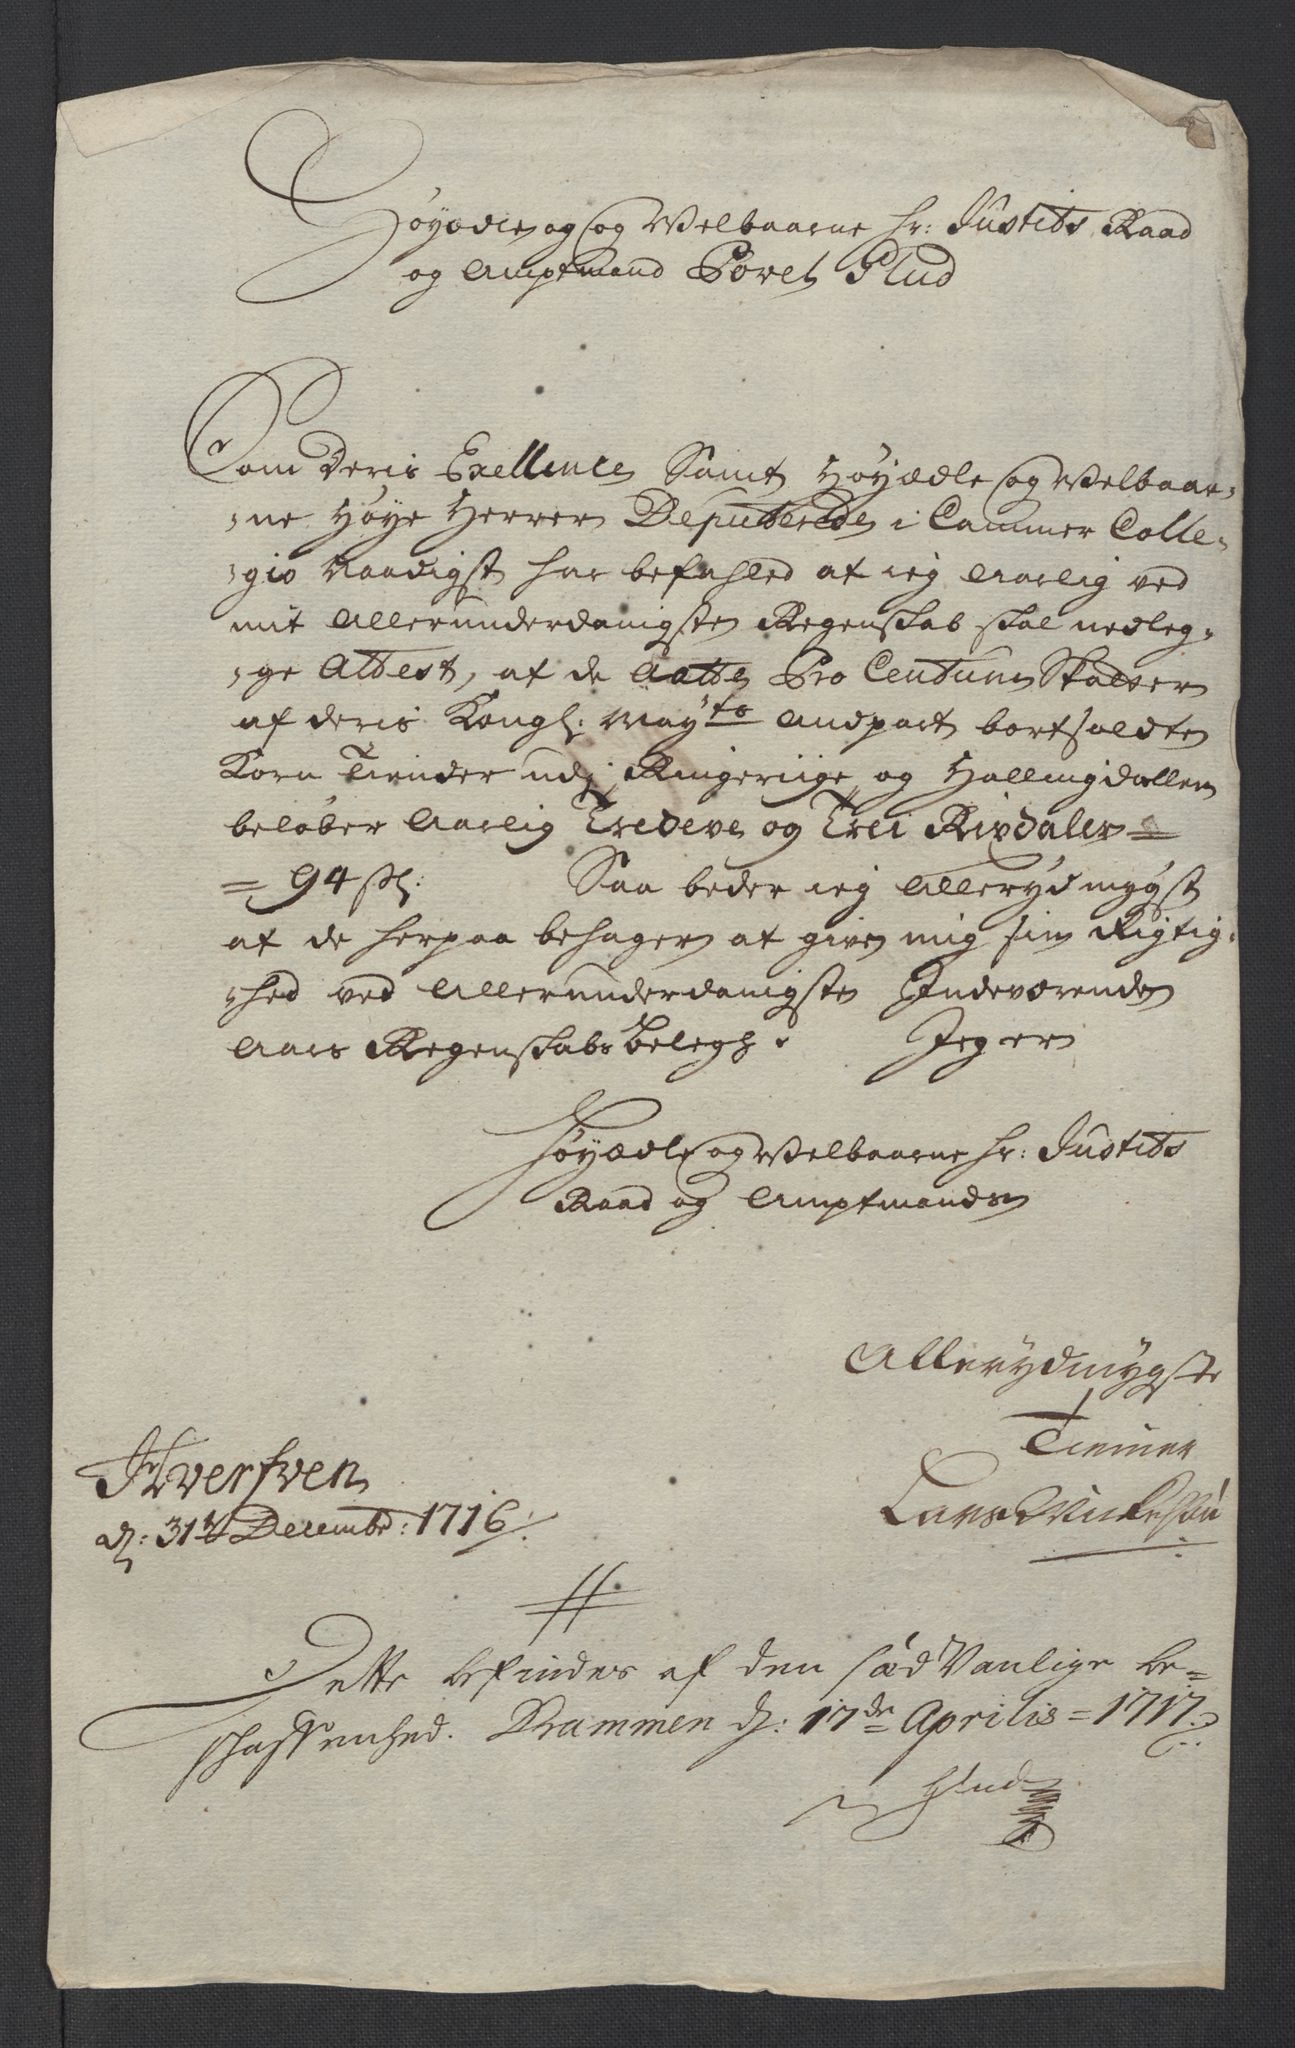 Høyædle og og Welbaarne hr: Justits Raad
og Amptmand Povel Glud
Som Deris Exellence Samt Høyædle og Welbaar,,
,,ne Høye Herrer Deputerede i Cammer Colle,,
,,gio Naadigst har befahled at ieg Aarlig ved
mit Allerunderdanigste Regenskab skal nedleg,,
,,ge Attest, at de Aatte Pro Centum Skatter
af deris Kongl: Mayts Andpart bortsoldte
Korn Tiender udj Ringeriige og Hallingdallen
beløber Aarlig Tredeve og Trei Rixdaler =
= 94 ẞl: Saa beder ieg Allerydmygst
at de herpaa behager at give mig sin Rigtig,,
,,hed ved Allerunderdanigste Indeværende
Aars Regenskabs belegh. Jeg er
Høyædle og Welbaarne hr: Justits
Raad og Amptmands
Allerydmygste
Tienner
Lars
Hverfven
d: 31te Decembr: 1716
Dette befindes af den sædVanlige be=
schaffenhed. Brammen d: 17de Aprilis = 1717.
Glud